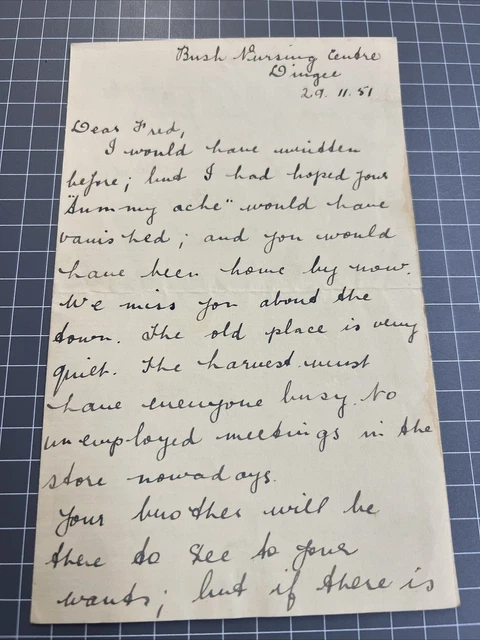 Bush Nursing Centre
Dingee
29.11.51
Dear Fred,
I would have written
before; but I had hoped your
"tummy ache" would have
vanished; and you would
have been home by now.
We miss you about the
town. The old place is very
quiet. The harvest must
have everyone busy. No
unemployed meetings in the
store nowadays.
Your brother will be
there to see to your
wants; but if there is